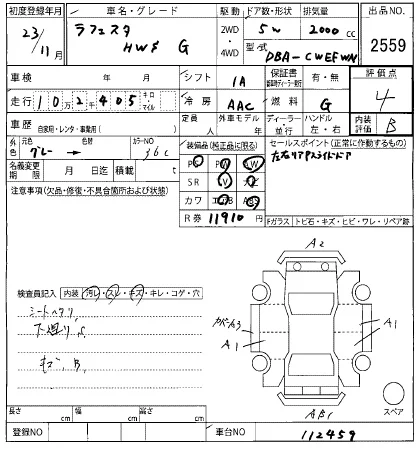 初度登録年月 車名・グレード 駆動 ドア数・形状 排気量 出品NO.
23/11月 ラフェスタ HWS G 2WD・4WD 5W 2000cc 2559
型式 DBA-CWEFWN
車検 年 月 シフト IA 保証書 有・無 評価点
走行 10万2千405 キロ・マイル 冷房 AAC 燃料 G 4
車歴 自家用・レンタ・事業用( ) 定員 人 外車モデル 年 ディーラー・並行 ハンドル 左・右 内装評価 B
外色 元色 グレー → 色替 カラーNO 36C 装備品(純正品に限る) セールスポイント(正常に作動するもの)
左右リアスライドドア
名義変更期限 月 日迄 積載 t PS PW AW
注意事項(欠品・修復・不具合箇所および状態) SR
カワ エアB ABS
R券 11910 Fガラス トビ石・キズ・ヒビ・ワレ・リペア跡
A2
検査員記入 内装 汚レ・スレ・キズ・キレ・コゲ・穴
シートヘタリ
下廻りS
キズ、B
A1
A1
スペア
長さ cm 幅 cm 高さ cm
登録NO 車台NO 112459